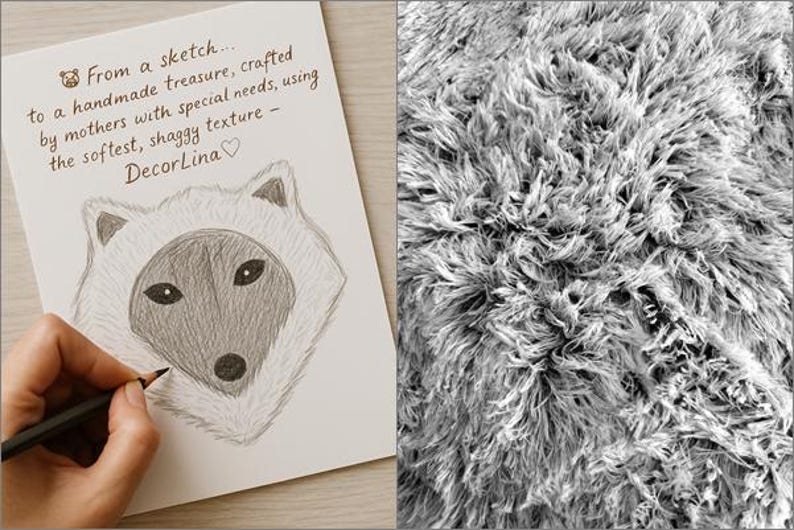 🐻 From a sketch...
to a handmade treasure, crafted
by mothers with special needs, using
the softest, shaggy texture –
DecorLina♡